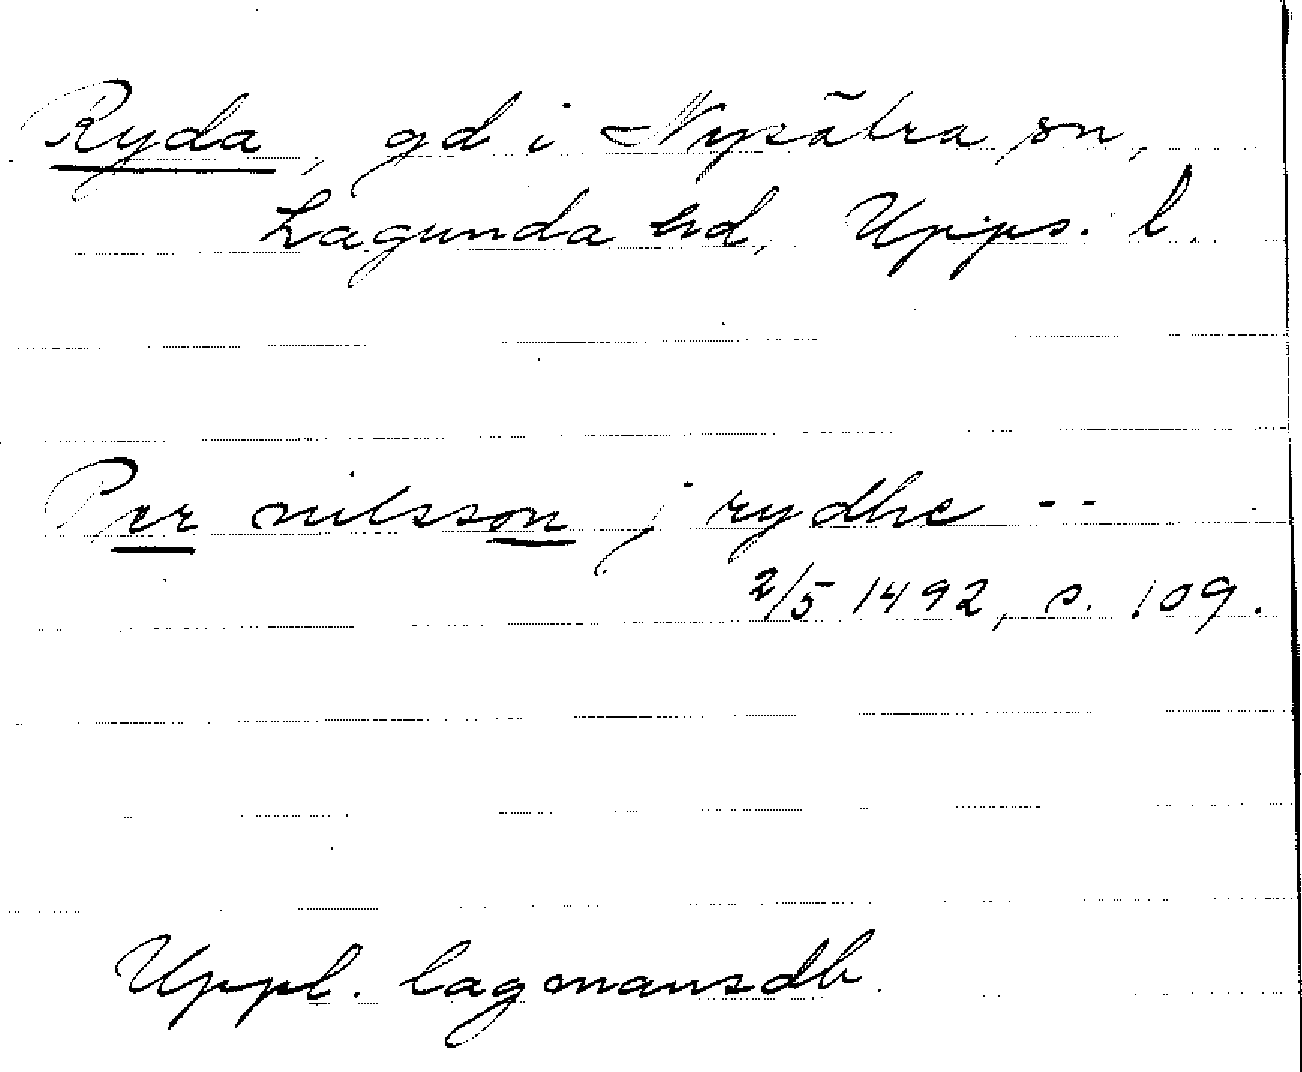 Ryda, gd i Nysätra sn,
Lagunda hd, Upps. l.
Per nilsson j rydhe --
2/5 1492, s. 109.
Uppl. lagmansdb.